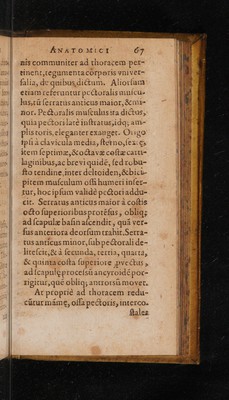 ANATOMICI 67
nis communiter ad thoracem per-
tinent, tegumenta corporis vniver-
salia, de quibus dictum. Aliorsum
etiam referuntur pectoralis muscu-
lus, tū serratus anticus maior, & mi-
nor. Pectoralis musculus ita dictus,
quia pectori latè instratus, idq; am-
plis toris, eleganter exanget. Origo
ipsi à clavicula media, sterno, sextę,
item septimæ, & octavæ costæ carti-
laginibus, ac brevi quidē, sed robu-
sto tendine, inter deltoiden, & bici-
pitem musculum ossi humeri inseri-
tur, hoc ipsum validè pectori addu-
cit. Serratus anticus maior à costis
octo superioribus protēsus, obliq;
ad scapulæ basin ascendit, quā ver-
sus anteriora deorsum trahit. Serra-
tus anticus minor, sub pectorali de-
litescit, & à secunda, tertia, quarta,
& quinta costa superiore provectus,
ad scapulę processū ancyroidē por-
rigitur, quē obliq; antrorsū movet.
At propriè ad thoracem redu-
cūtur mámę, ossa pectoris, interco-
stales